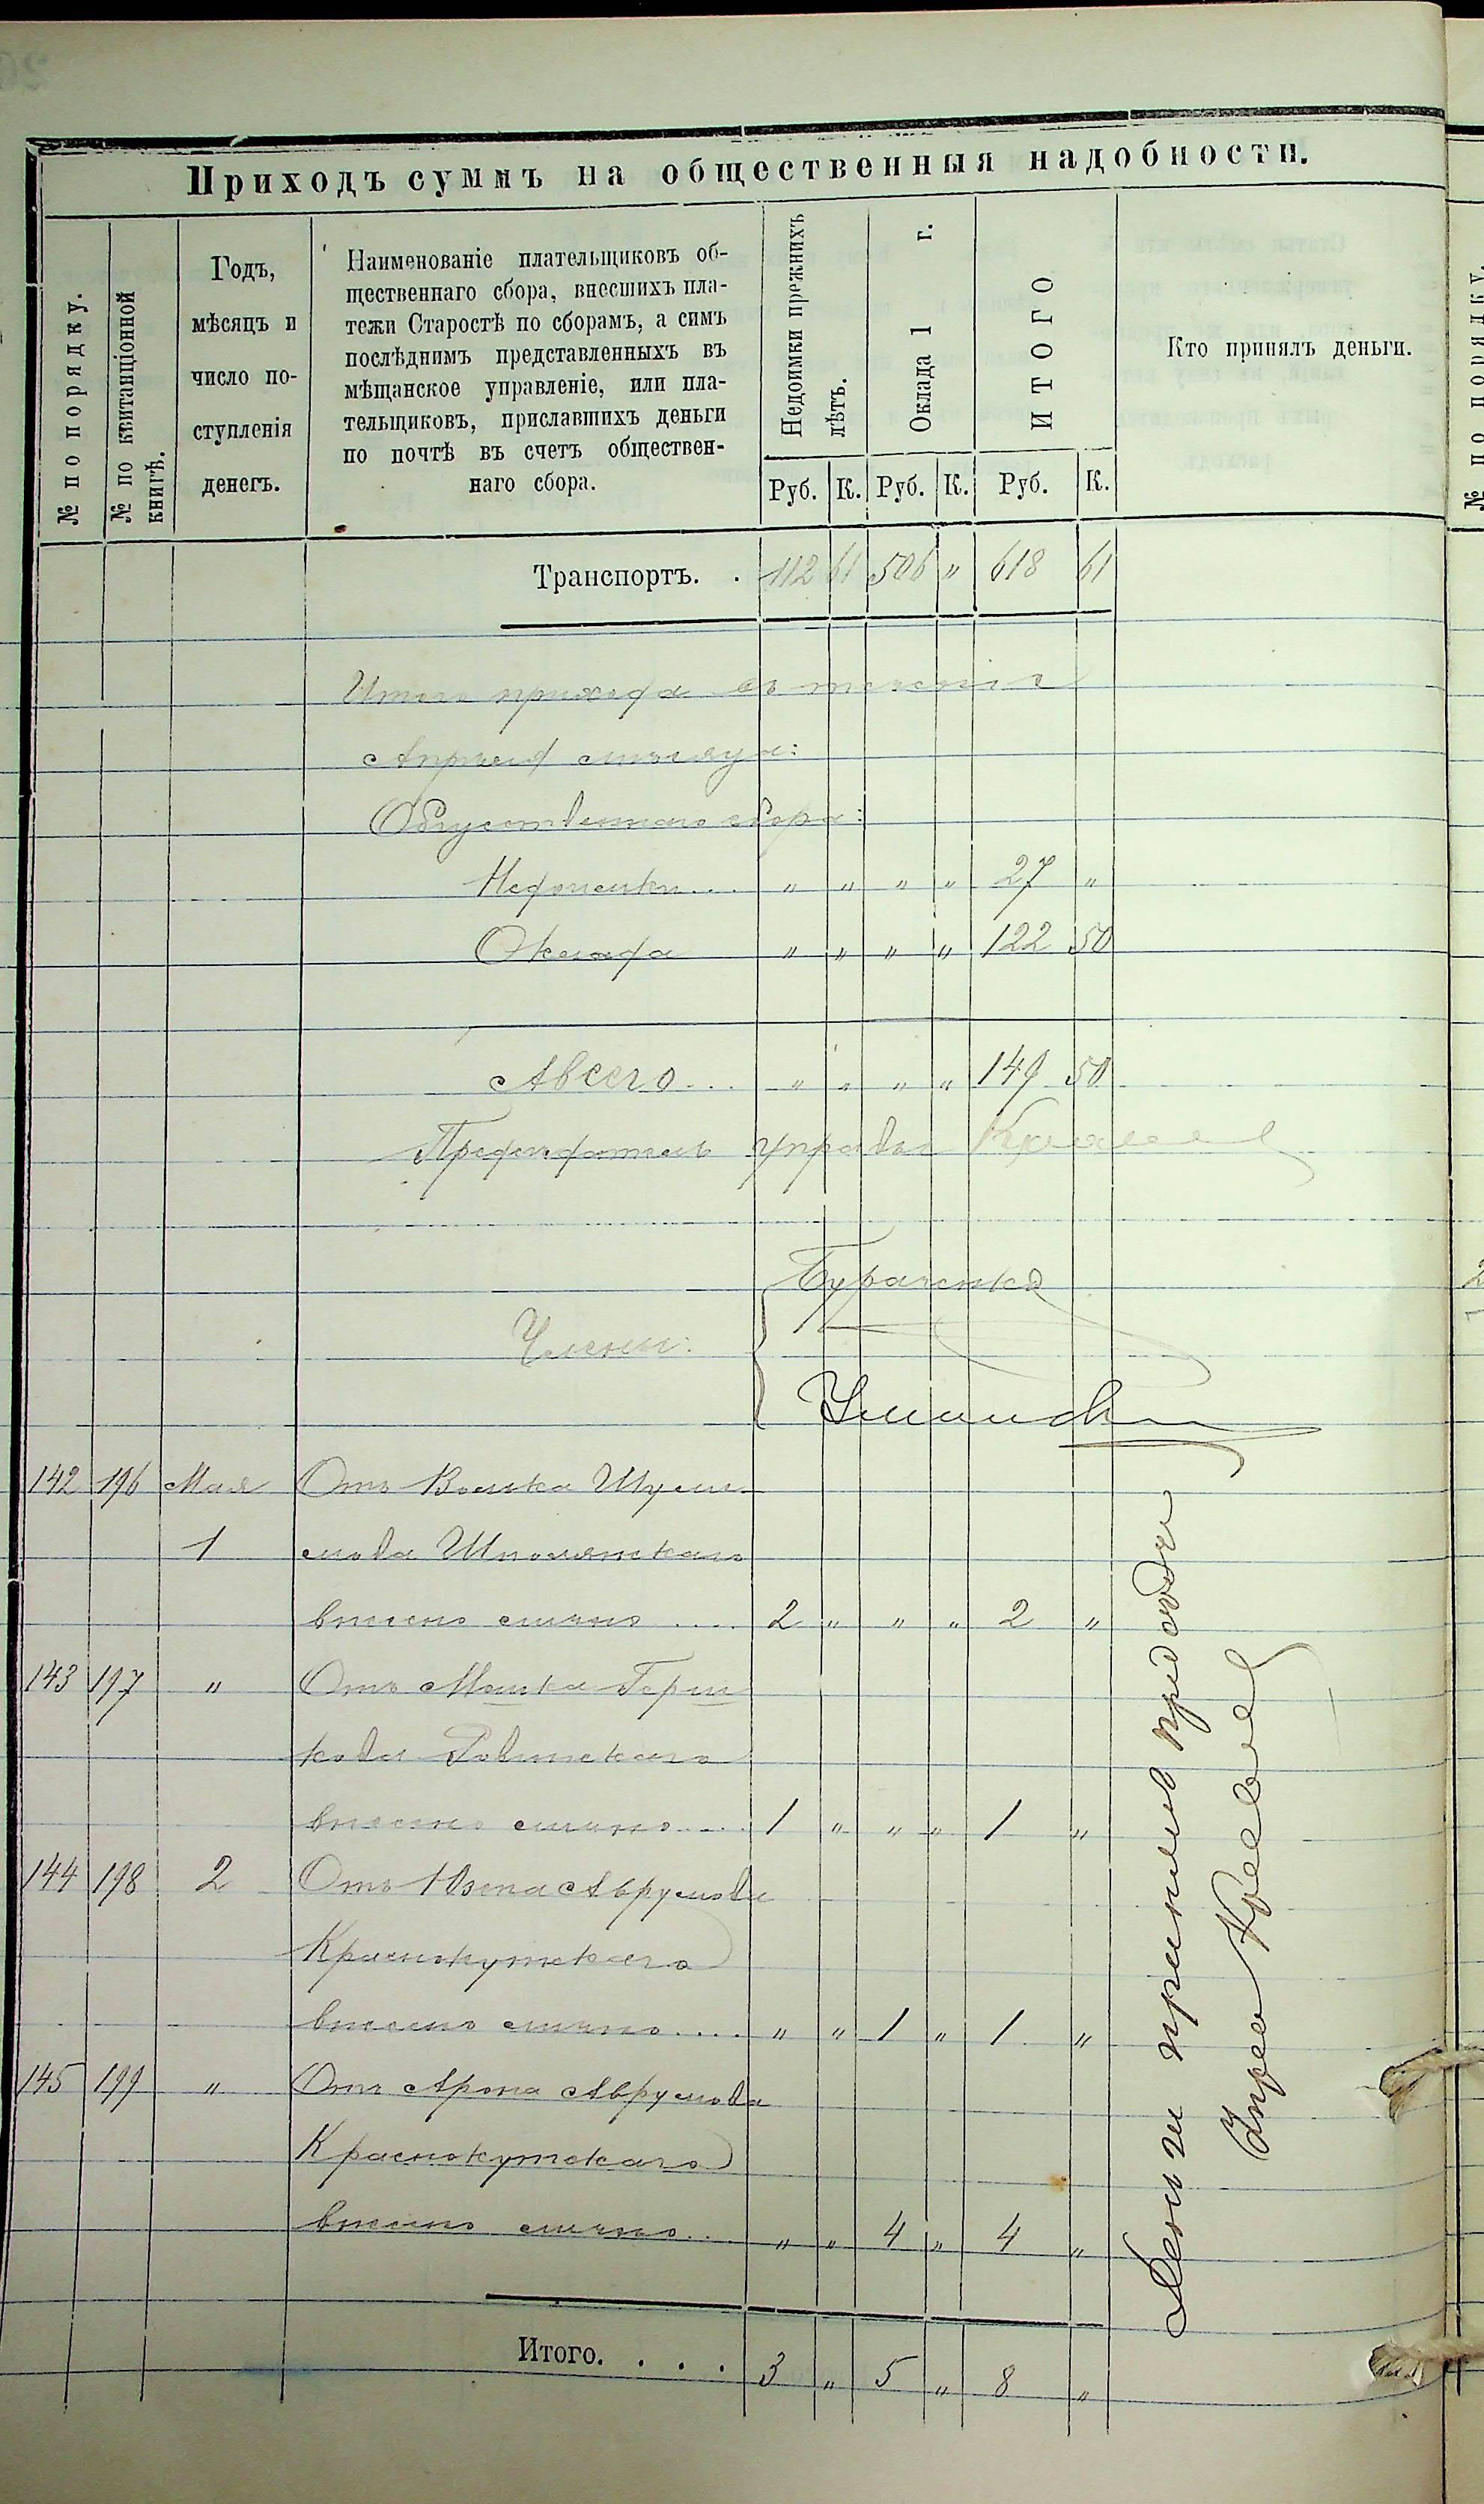 Приходъ суммъ на общественныя надобности.
№ по порядку.
№ по квитанціонной книгѣ.
Годъ,
мѣсяцъ и
число по-
ступленія
денегъ.
Наименованіе плательщиковъ об-
щественнаго сбора, внесшихъ пла-
тежи Старостѣ по сборамъ, а симъ
послѣднимъ представленныхъ въ
мѣщанское управленіе, или пла-
тельщиковъ, приславшихъ деньги
по почтѣ въ счетъ обществен-
наго сбора.
Недоимки прежнихъ лѣтъ.
Оклада 1 г.
ИТОГО
Кто принялъ деньги.
Руб. К. Руб. К. Руб. К.
Транспортъ. . 112 61 506 " 618 61
Итого прихода въ теченіи
Апрѣля мѣсяца:
Общественнаго сбора:
Недоимки.... " " " " 27 "
Оклада " " " " 122 50
А всего... " " " " 149 50
Предсѣдатель управы
Бураченко
Члены:
Уманскій
142 196 Мая Отъ Волька Шулимъ
1 мова Шполянскаго
внесено лично .... 2 " " " 2 "
143 197 " Отъ Мошка Герш
кова Ровинскаго
внесено лично.... 1 " " " 1 "
144 198 2 Отъ Юзепа Аврумова
Краснокутскаго
внесено лично.... " " 1 " 1 "
145 199 " Отъ Арона Аврумова
Краснокутскаго
внесено лично... " " 4 " 4 "
Деньги принялъ
Итого. . . . 3 " 5 " 8 "
№ по порядку.